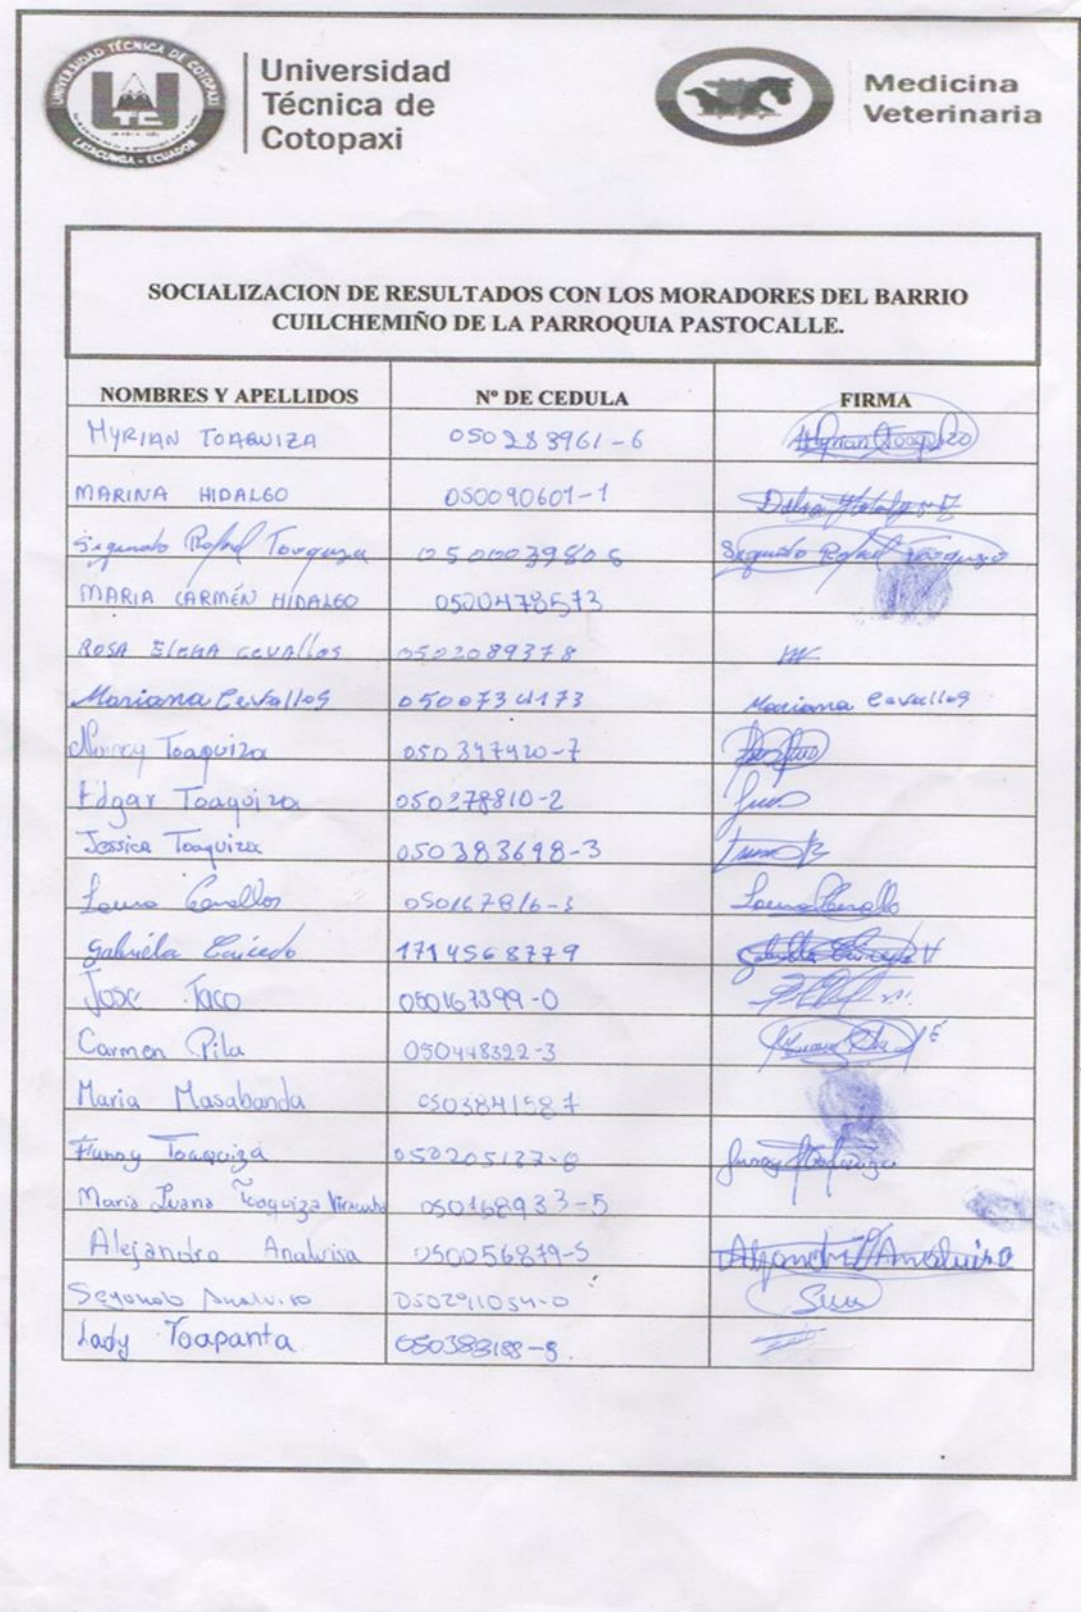 UNIVERSIDAD TÉCNICA DE COTOPAXI
UTC
LATACUNGA - ECUADOR
Universidad
Técnica de
Cotopaxi
Medicina
Veterinaria
SOCIALIZACION DE RESULTADOS CON LOS MORADORES DEL BARRIO
CUILCHEMIÑO DE LA PARROQUIA PASTOCALLE.
NOMBRES Y APELLIDOS Nº DE CEDULA FIRMA
MYRIAN TOAQUIZA 050283961-6 Myrian Toaquiza
MARINA HIDALGO 050090601-1
Segundo Rafael Toaquiza 0500039806 Segundo Rafael Toaquiza
MARIA CARMÉN HIDALGO 0500478573
ROSA ELENA CEVALLOS 0502089378
Mariana Cevallos 0500734173 Mariana Cevallos
Nancy Toaquiza 050347420-7
Edgar Toaquiza 050278810-2
Jessica Toaquiza 050383698-3
Laura Cevallos 050167816-3
Gabriela Caicedo 1714568779
Jose Taco 050167399-0
Carmen Pila 050448322-3
Maria Masabanda 0503841587
Fanny Toaquiza
Maria Juana Toaquiza 050168933-5
Alejandro Analuisa 050056879-5 Alejandro Analuisa
Segundo Analuisa 050291054-0
Lady Toapanta 050388188-8.